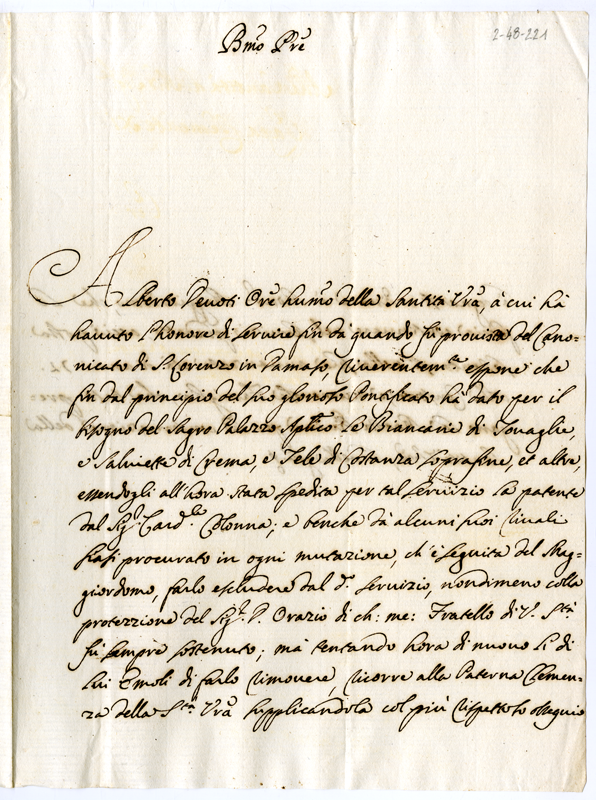 2-48-221
Bmo Pre
Alberto Devoti Ore humo della Santità Vra, à cui hà
hauuto l'honore di seruire sin da quando fù prouista del Cano-
nicato di S. Lorenzo in Damaso, riuerentemte espone che
sin dal principio del suo glorioso Pontificato hà dato per il
bisogno del Sagro Palazzo Aplico le Biancarie di Touaglie,
e Saluiette di Crema, e Tele di Costanza soprafine, et altre,
essendogli all'hora stata spedita per tal seruizio la patente
dal Sigr Cardle Colonna; e benche dà alcuni suoi riuali
siasi procurato in ogni mutazione, ch'è seguita del Mag-
giordomo, farlo escludere dal do seruizio, nondimeno colla
protezzione del Sigr D. Orazio di ch: me: Fratello di V. Stà
fù sempre sostenuto; mà tentando hora di nuouo li di
lui Emoli di farlo rimouere, ricorre alla Paterna Clemen-
za della Stà Vra supplicandola col più rispettoso ossequio